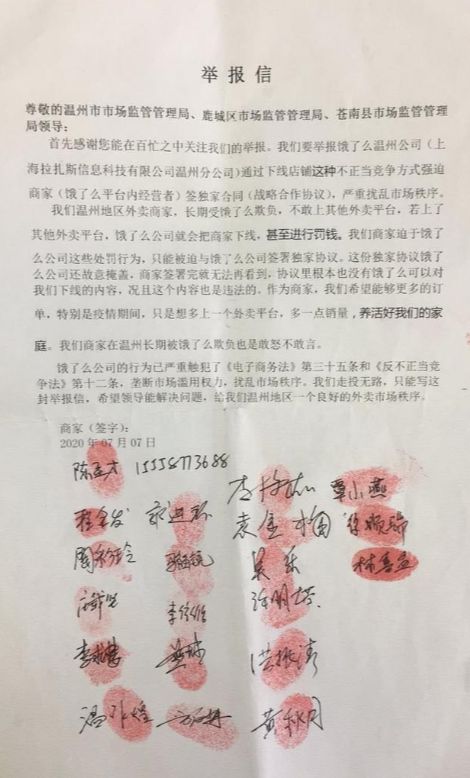 举报信
尊敬的温州市市场监管管理局、鹿城区市场监管管理局、苍南县市场监管管理
局领导：
首先感谢您能在百忙之中关注我们的举报。我们要举报饿了么温州公司（上
海拉扎斯信息科技有限公司温州分公司）通过下线店铺这种不正当竞争方式强迫
商家（饿了么平台内经营者）签独家合同（战略合作协议），严重扰乱市场秩序。
我们温州地区外卖商家，长期受饿了么欺负，不敢上其他外卖平台，若上了
其他外卖平台，饿了么公司就会把商家下线，甚至进行罚钱。我们商家迫于饿了
么公司这些处罚行为，只能被迫与饿了么公司签署独家协议。这份独家协议饿了
么公司还故意掩盖，商家签署完就无法再看到，协议里根本也没有饿了么可以对
我们下线的内容，况且这个内容也是违法的。作为商家，我们希望能够更多的订
单，特别是疫情期间，只是想多上一个外卖平台，多一点销量，养活好我们的家
庭。我们商家在温州长期被饿了么欺负也是敢怒不敢言。
饿了么公司的行为已严重触犯了《电子商务法》第三十五条和《反不正当竞
争法》第十二条，垄断市场滥用权力，扰乱市场秩序。我们走投无路，只能写这
封举报信，希望领导能解决问题，给我们温州地区一个良好的外卖市场秩序。
商家（签字）：
2020年07月07日
15558773688
覃小燕
黄秋月